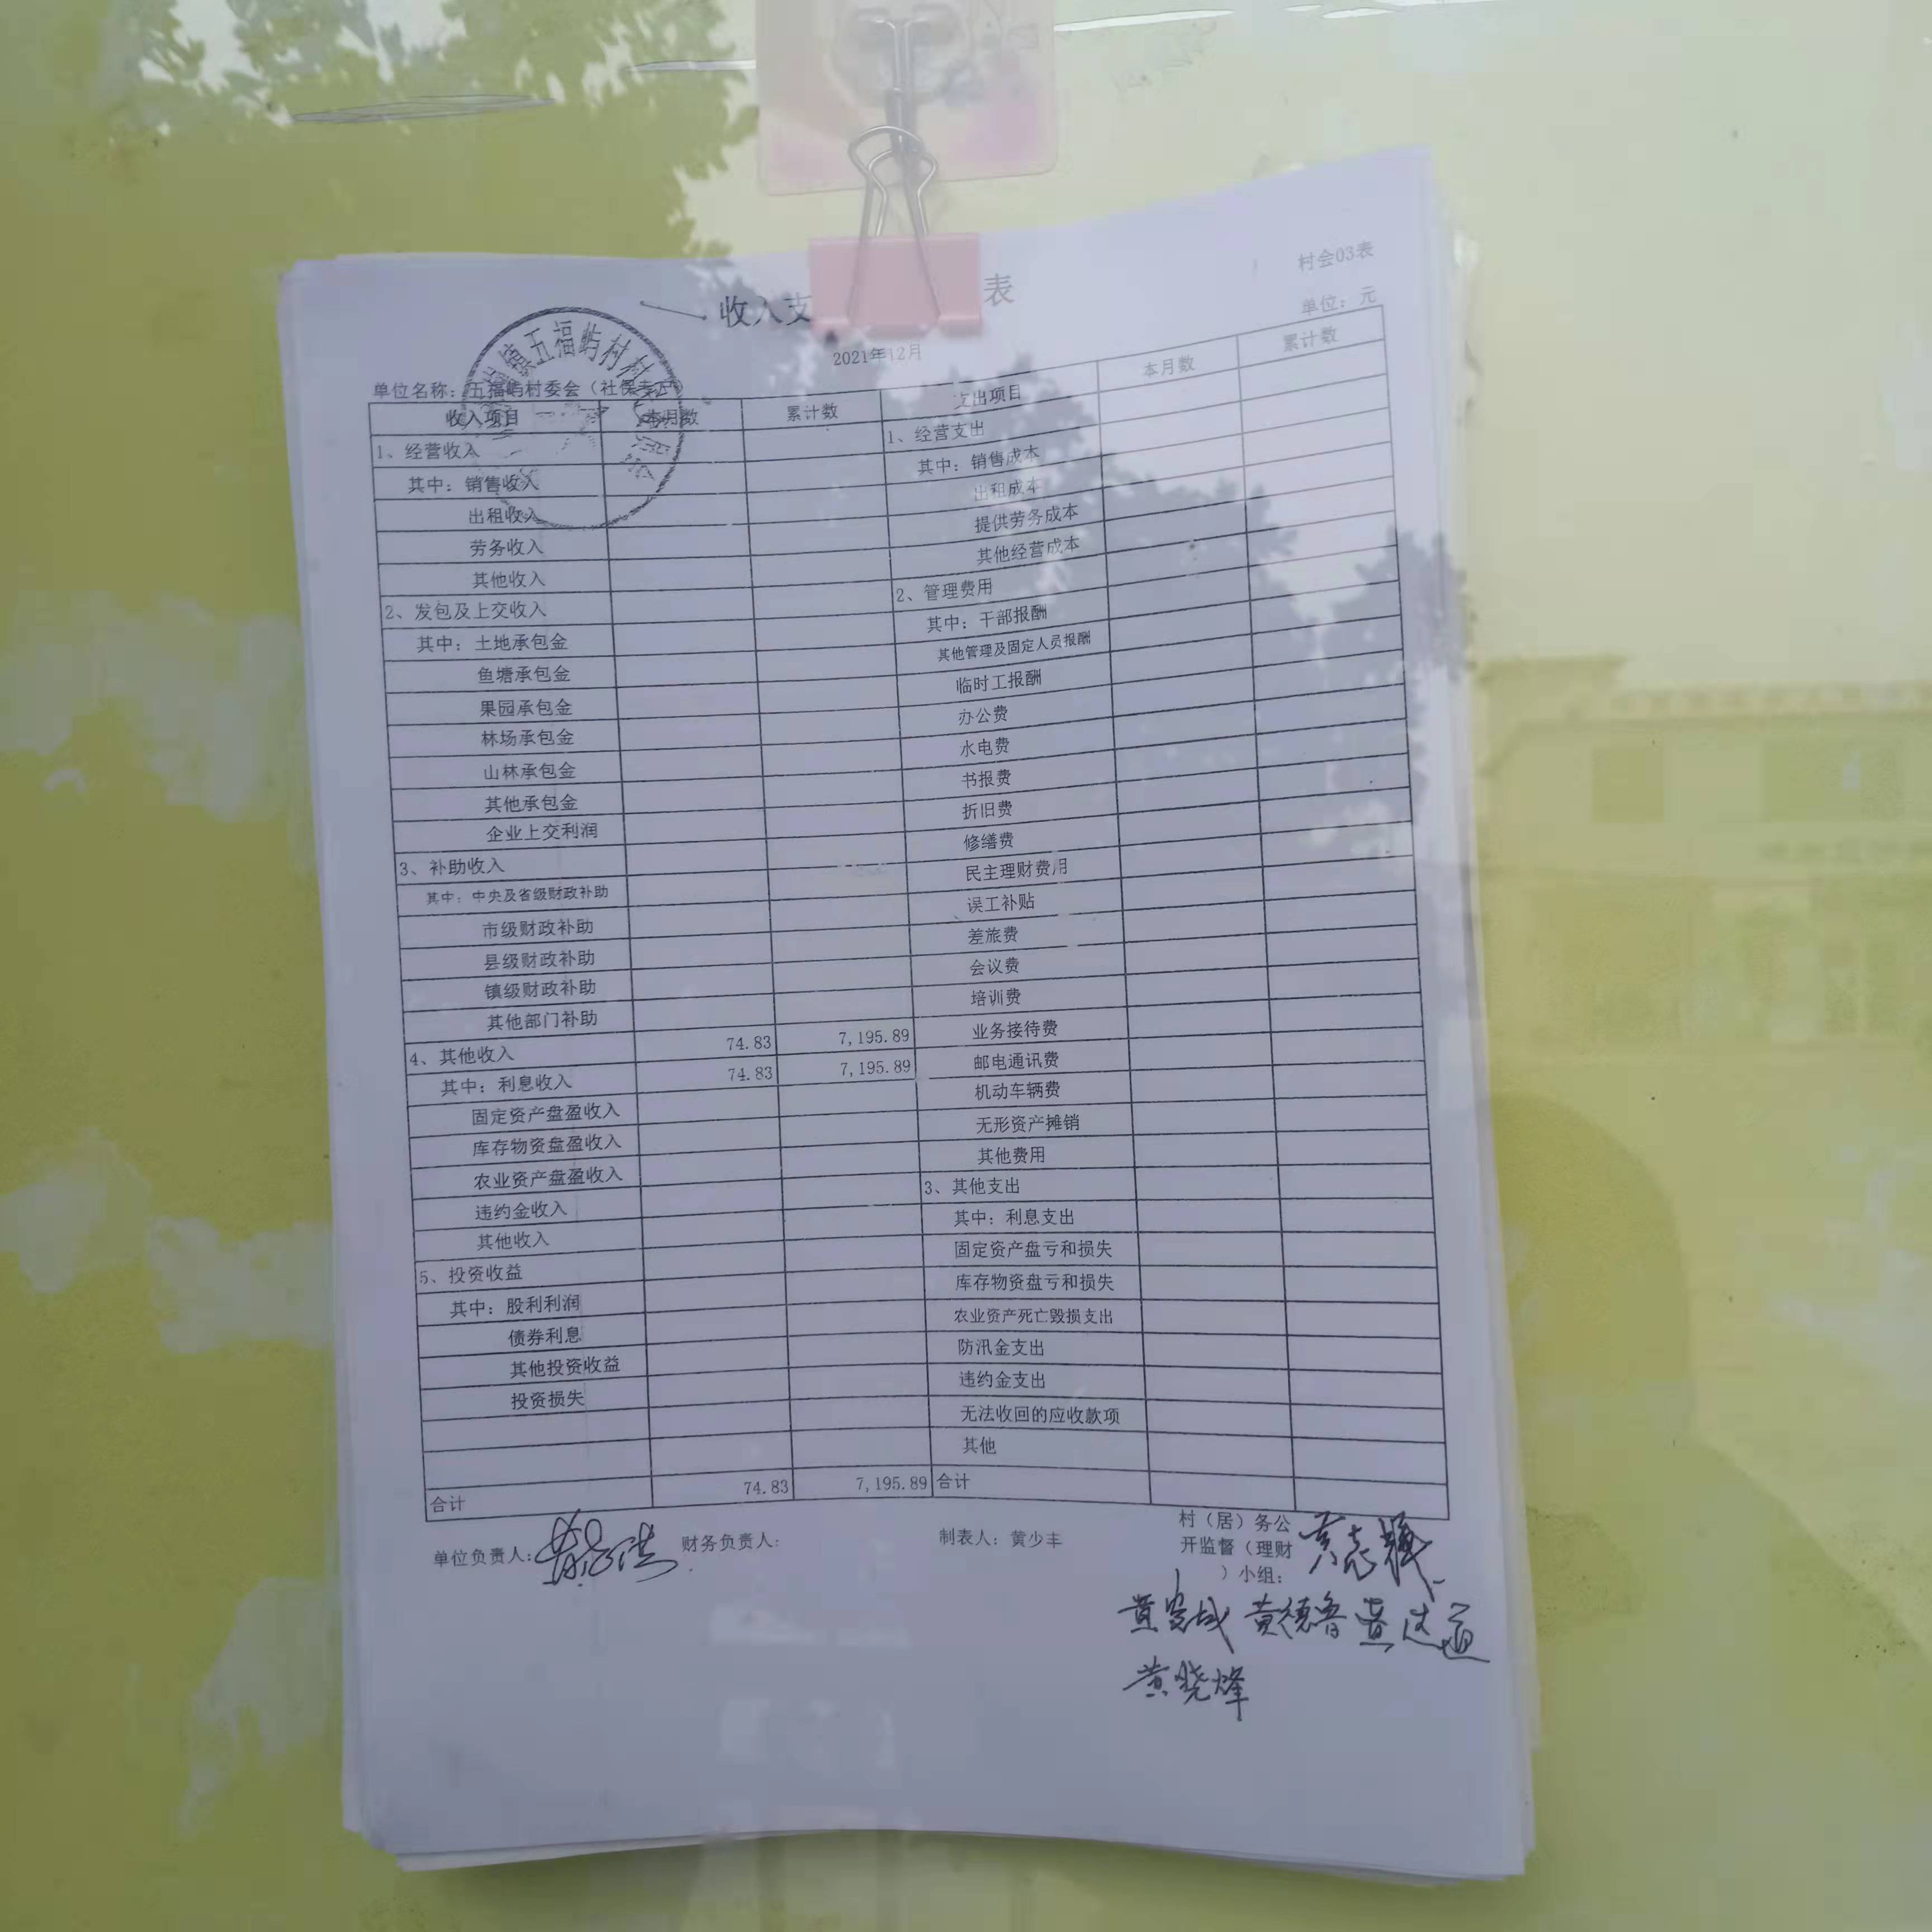 村会03表
收入支 表
单位：元
2021年12月
镇五福屿村村
单位名称：五福屿村委会（社保专户）
收入项目 本月数 累计数 支出项目 本月数 累计数
1、经营收入 1、经营支出
其中：销售收入 其中：销售成本
出租收入 出租成本
劳务收入 提供劳务成本
其他收入 其他经营成本
2、发包及上交收入 2、管理费用
其中：土地承包金 其中：干部报酬
鱼塘承包金 其他管理及固定人员报酬
果园承包金 临时工报酬
林场承包金 办公费
山林承包金 水电费
其他承包金 书报费
企业上交利润 折旧费
3、补助收入 修缮费
其中：中央及省级财政补助 民主理财费用
市级财政补助 误工补贴
县级财政补助 差旅费
镇级财政补助 会议费
其他部门补助 培训费
4、其他收入 74.83 7,195.89 业务接待费
其中：利息收入 74.83 7,195.89 邮电通讯费
固定资产盘盈收入 机动车辆费
库存物资盘盈收入 无形资产摊销
农业资产盘盈收入 其他费用
违约金收入 3、其他支出
其他收入 其中：利息支出
5、投资收益 固定资产盘亏和损失
其中：股利利润 库存物资盘亏和损失
债券利息 农业资产死亡毁损支出
其他投资收益 防汛金支出
投资损失 违约金支出
无法收回的应收款项
其他
合计 74.83 7,195.89 合计
单位负责人： 财务负责人： 制表人：黄少丰
村（居）务公
开监督（理财
）小组：
黄德鲁
黄晓烽